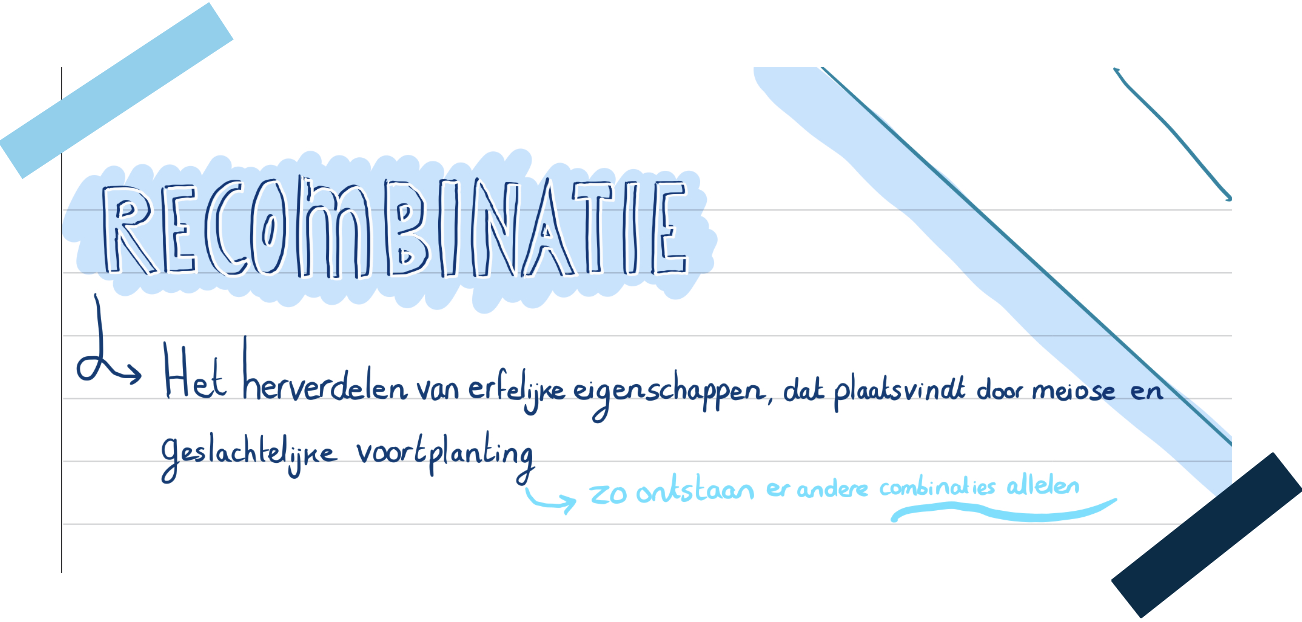 RECOMBINATIE
Het herverdelen van erfelijke eigenschappen, dat plaatsvindt door meiose en
geslachtelijke voortplanting
zo ontstaan er andere combinaties allelen